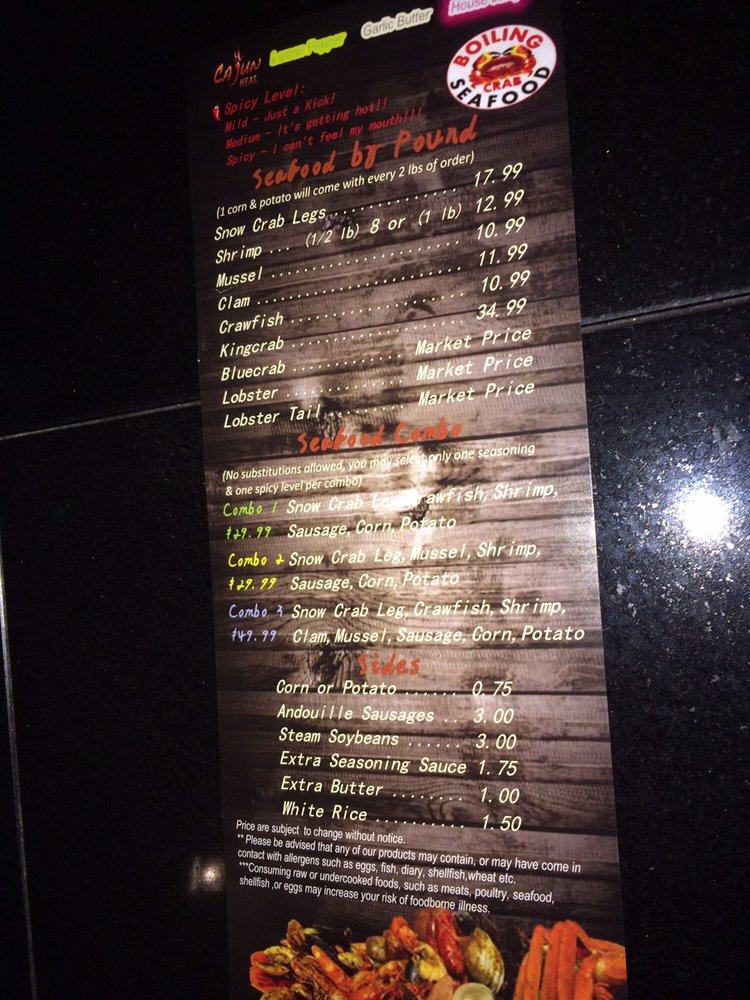 CAJUN
HEAT.
Lemon Pepper
Garlic Butter
House
BOILING
CRAB
SEAFOOD
Spicy Level:
Mild - Just a Kick!
Medium - It's getting hot!!
Spicy - I can't feel my mouth!!!
Seafood by Pound
(1 corn & potato will come with every 2 lbs of order)
Snow Crab Legs.................. 17.99
Shrimp ... (1/2 lb) 8 or (1 lb) 12.99
Mussel ........................ 10.99
Clam .......................... 11.99
Crawfish ...................... 10.99
Kingcrab ...................... 34.99
Bluecrab .............. Market Price
Lobster ............... Market Price
Lobster Tail.......... Market Price
Seafood Combo
(No substitutions allowed, you may select only one seasoning
& one spicy level per combo)
Combo 1 Snow Crab Leg, Crawfish, Shrimp,
$29.99 Sausage, Corn, Potato
Combo 2 Snow Crab Leg, Mussel, Shrimp,
$29.99 Sausage, Corn, Potato
Combo 3 Snow Crab Leg, Crawfish, Shrimp,
$49.99 Clam, Mussel, Sausage, Corn, Potato
Sides
Corn or Potato ...... 0.75
Andouille Sausages .. 3.00
Steam Soybeans ...... 3.00
Extra Seasoning Sauce 1.75
Extra Butter ........ 1.00
White Rice .......... 1.50
Price are subject to change without notice.
** Please be advised that any of our products may contain, or may have come in
contact with allergens such as eggs, fish, diary, shellfish,wheat etc.
***Consuming raw or undercooked foods, such as meats, poultry, seafood,
shellfish ,or eggs may increase your risk of foodborne illness.